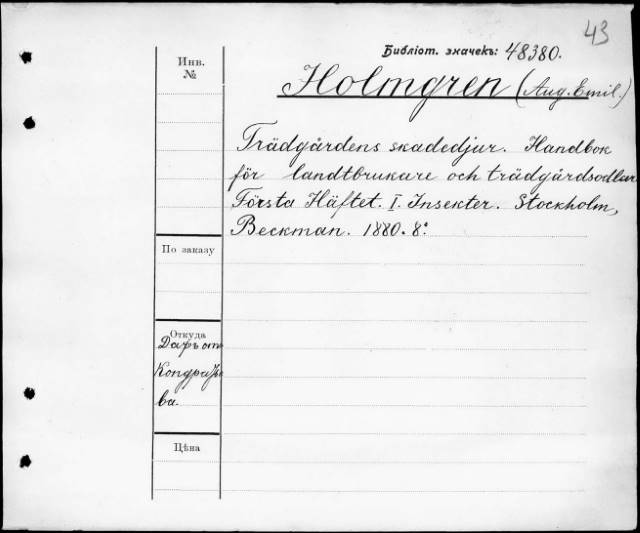 43
Библіот. значекъ: 48380.
Инв.
№
Holmgren (Aug. Emil.)
Trädgårdens skadedjur. Handbok
för landtbrukare och trädgårdsodlare
Första Häftet. I. Insekter. Stockholm,
Beckman. 1880. 8º.
По заказу
Откуда
Даръ отъ
Кондратье
ва.
Цѣна